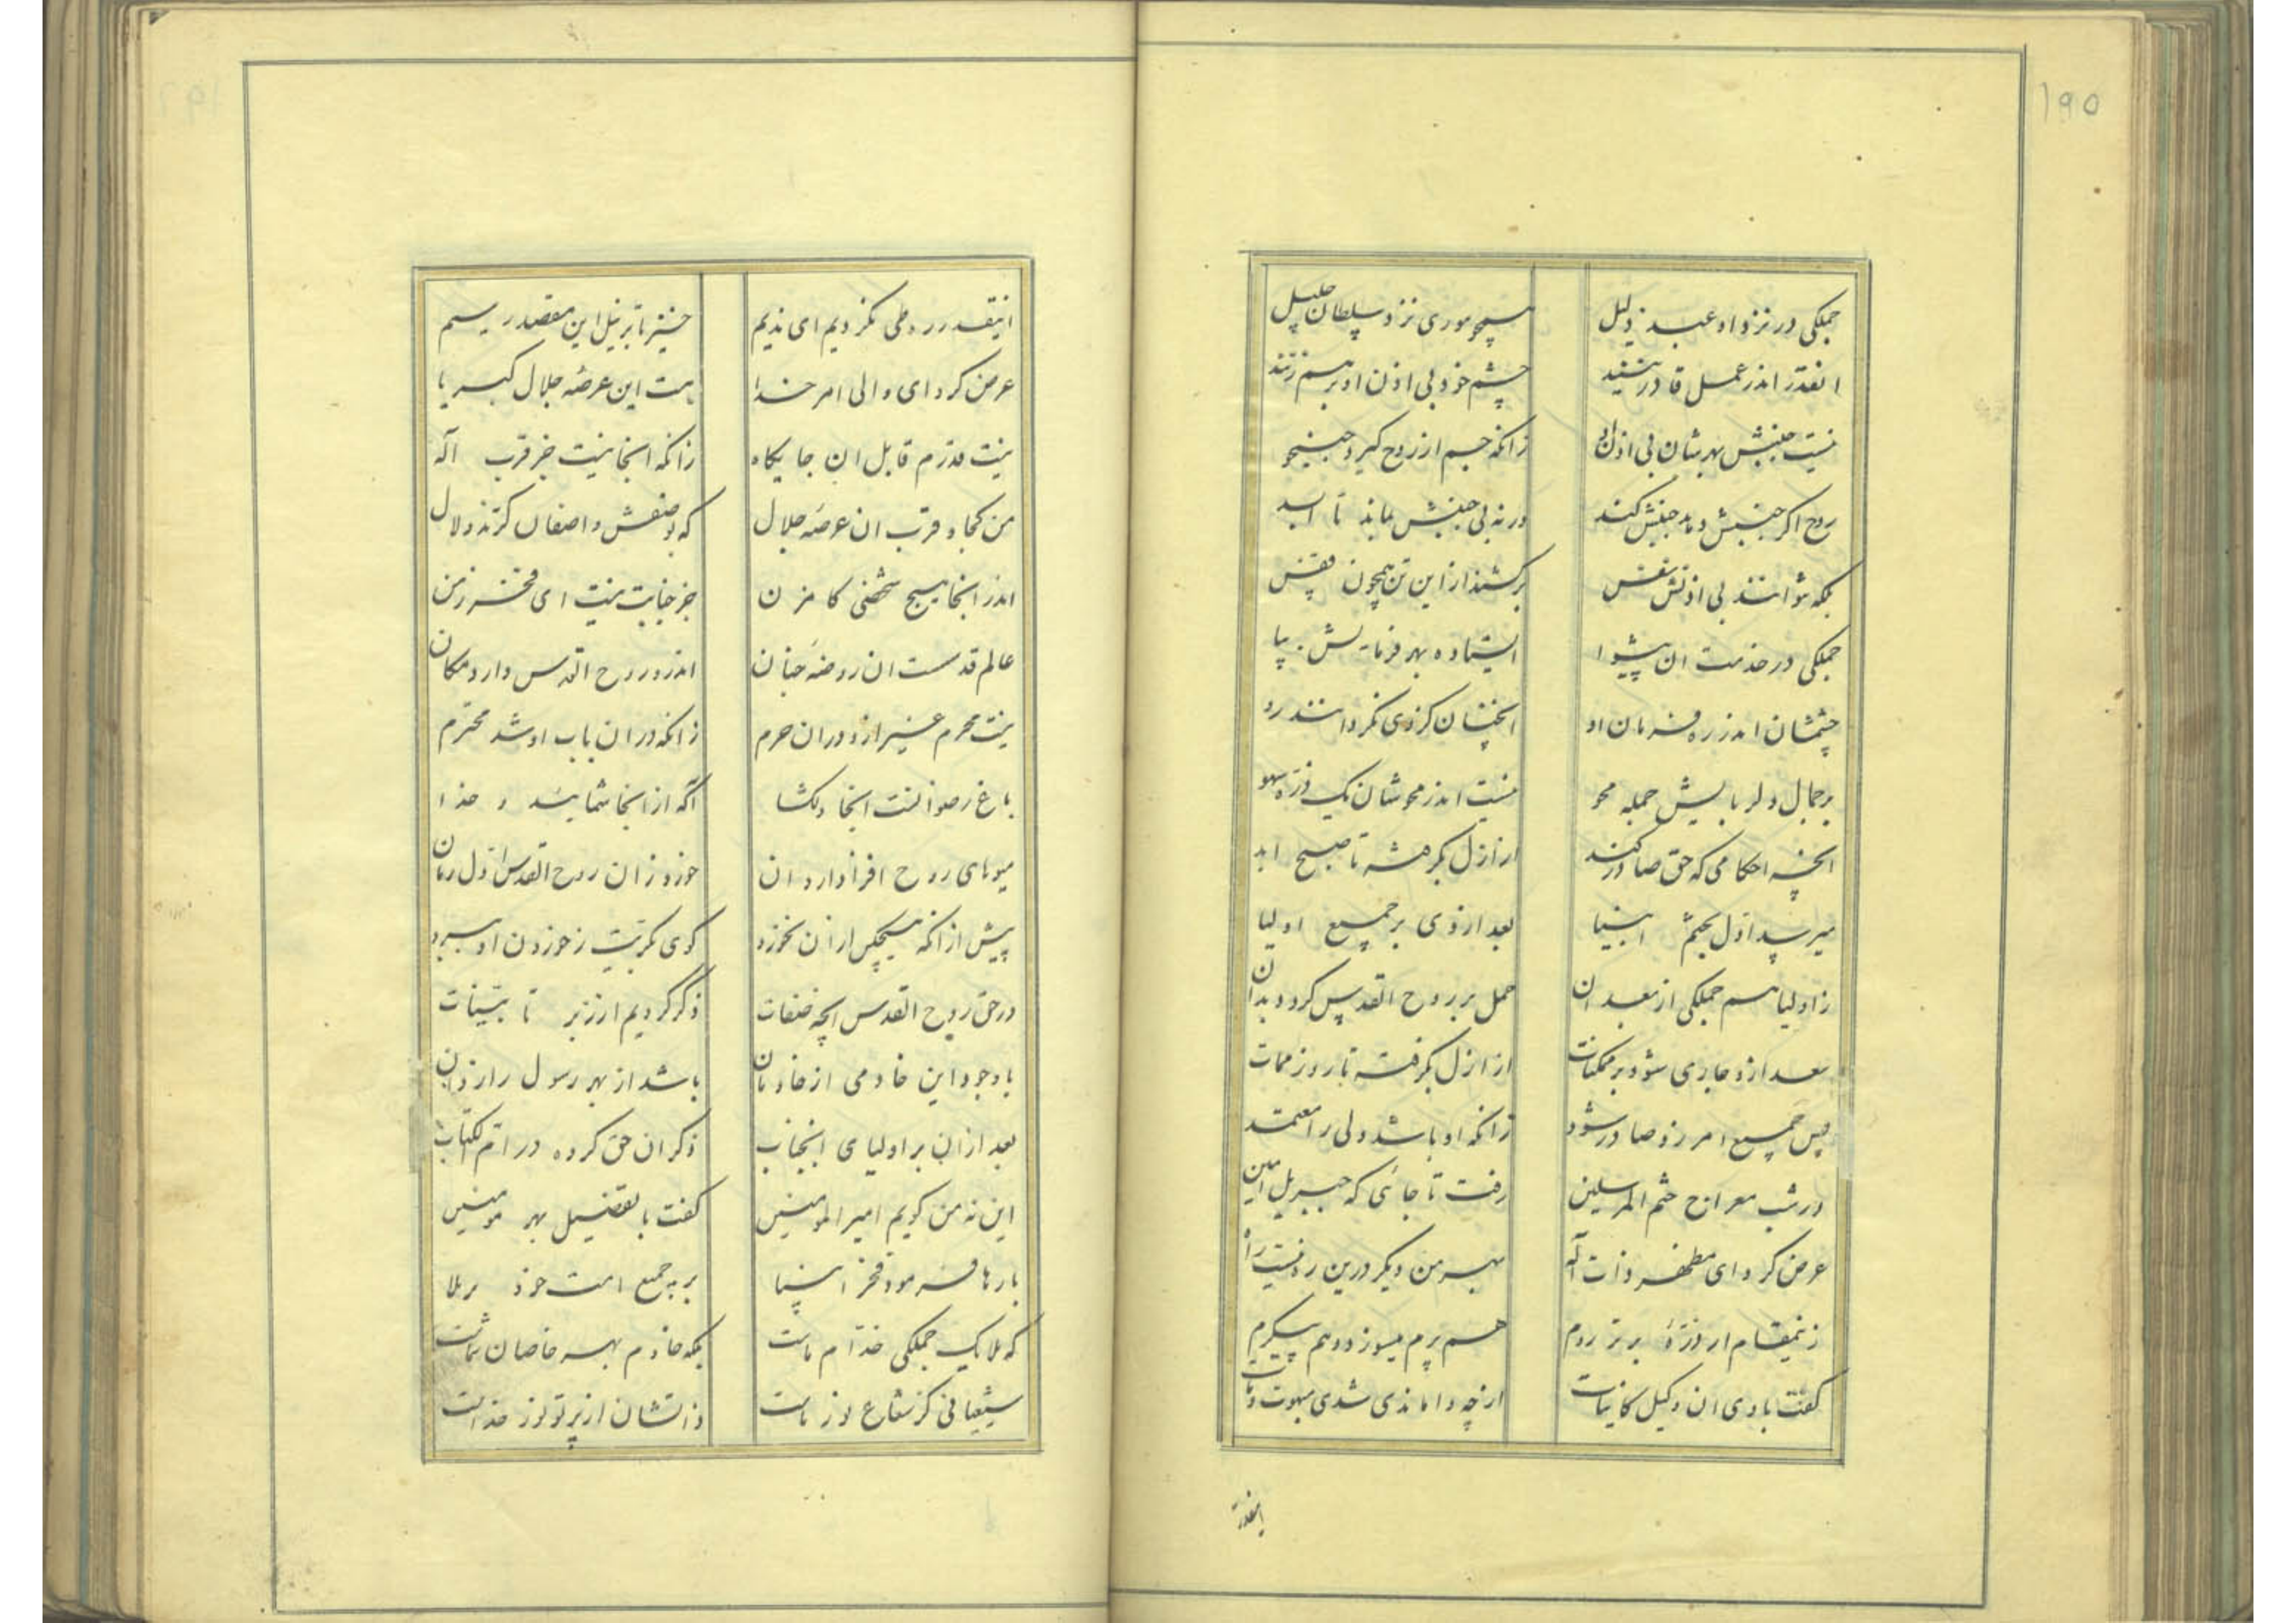 ۱۹۵
جملکی در نزد او عبد ذلیل همچو موری نزد سلطان جلیل
انقدر اندر عمل قادر نیند چشم خود بی اذن او برهم زنند
نیست جنبش بهرشان بی اذن او زانکه جسم از روح کیرد جنبنجو
روح اکر جنبش دهد جنبش کند ورنه بی جنبش بماند تا ابد
بکه نتوانند بی اذنش نفس برکشند از این تن همچون قفس
جملکی در خدمت ان پیشوا ایستاده بهر فرمایش بپا
چشمشان اندر ره فرمان او انچنان کز وی نکردانند رو
بر جمال دلربایش جمله محو نیست اندر محوشان یک ذره سهو
انچه احکامی که حق صادر کند از ازل بکرفته تا صبح ابد
میرسد اول بختم انبیا بعد از وی بر جمیع اولیا
ز اولیا هم جملکی از بعد ان حمل بر روح القدس کردد بدان
بعد ازو جاری شود بر ممکنات از ازل بکرفته تا روز ممات
پس جمیع امر زو صادر شود زانکه او باشد ولی را معتمد
در شب معراج ختم المرسلین رفت تا جائی که جبریل امین
عرض کرد ای مظهر ذات اله بهر من دیکر درین ره نیست راه
زینمقام ار ذرهٔ برتر روم هم پرم میسوزد و هم پیکرم
کفت با وی ان وکیل کاینات از چه واماندی شدی مبهوت و مات
اینقدر
اینقدر ره طی نکردیم ای ندیم خیز تا بر نیل این مقصد رسیم
عرض کرد ای والی امر خدا هست این عرصه جلال کبریا
نیست قدرم قابل ان جایکاه زانکه انجا نیست جز قرب اله
من کجا و قرب ان عرصه جلال که بوصفش واصفان کشتند لال
اندر انجا هیچ شخصی کامزن جز جنابت نیست ای فخر زمن
عالم قدست ان روضه جنان اندرو روح القدس دارد مکان
نیست محرم غیر ازو در ان حرم زانکه در ان باب او شد محترم
باغ رضوانست انجا دلکشا اکه از انجا شمائید و خدا
میوهای روح افزا دارد ان خورد زان روح القدس اول زمان
پیش از انکه هیچکس از ان نخورد کوی تربیت ز خوردن او ببرد
در حق روح القدس انچه صفات ذکر کردیم از زبر تا بینات
با وجود این خادمی از خادمان باشد از بهر رسول رازدان
بعد از ان بر اولیای انجناب ذکر ان حق کرده در ام الکتاب
این نه من کویم امیر المومنین کفت با تفضیل بهر مومنین
بارها فرمود فخر انبیا بر جمیع امت خود برملا
که ملایک جملکی خدام ماست بکه خادم بهر خاصان شماست
شیعیانی کز شعاع نور ماست ذاتشان از پرتو نور خداست